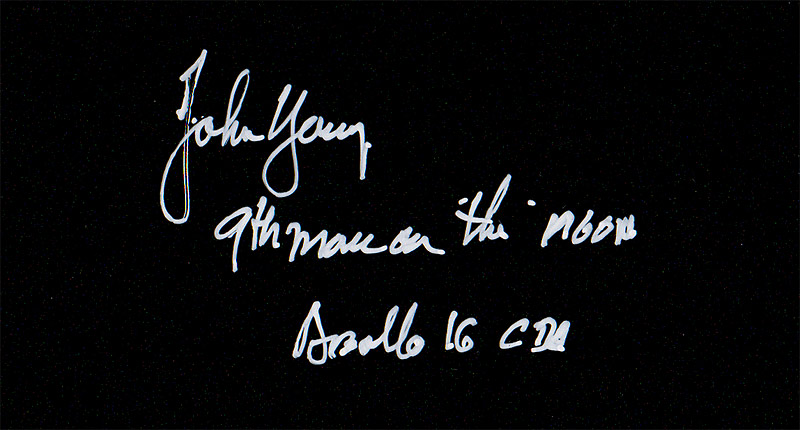 John Young
9th man on "the" moon
Apollo 16 CDR